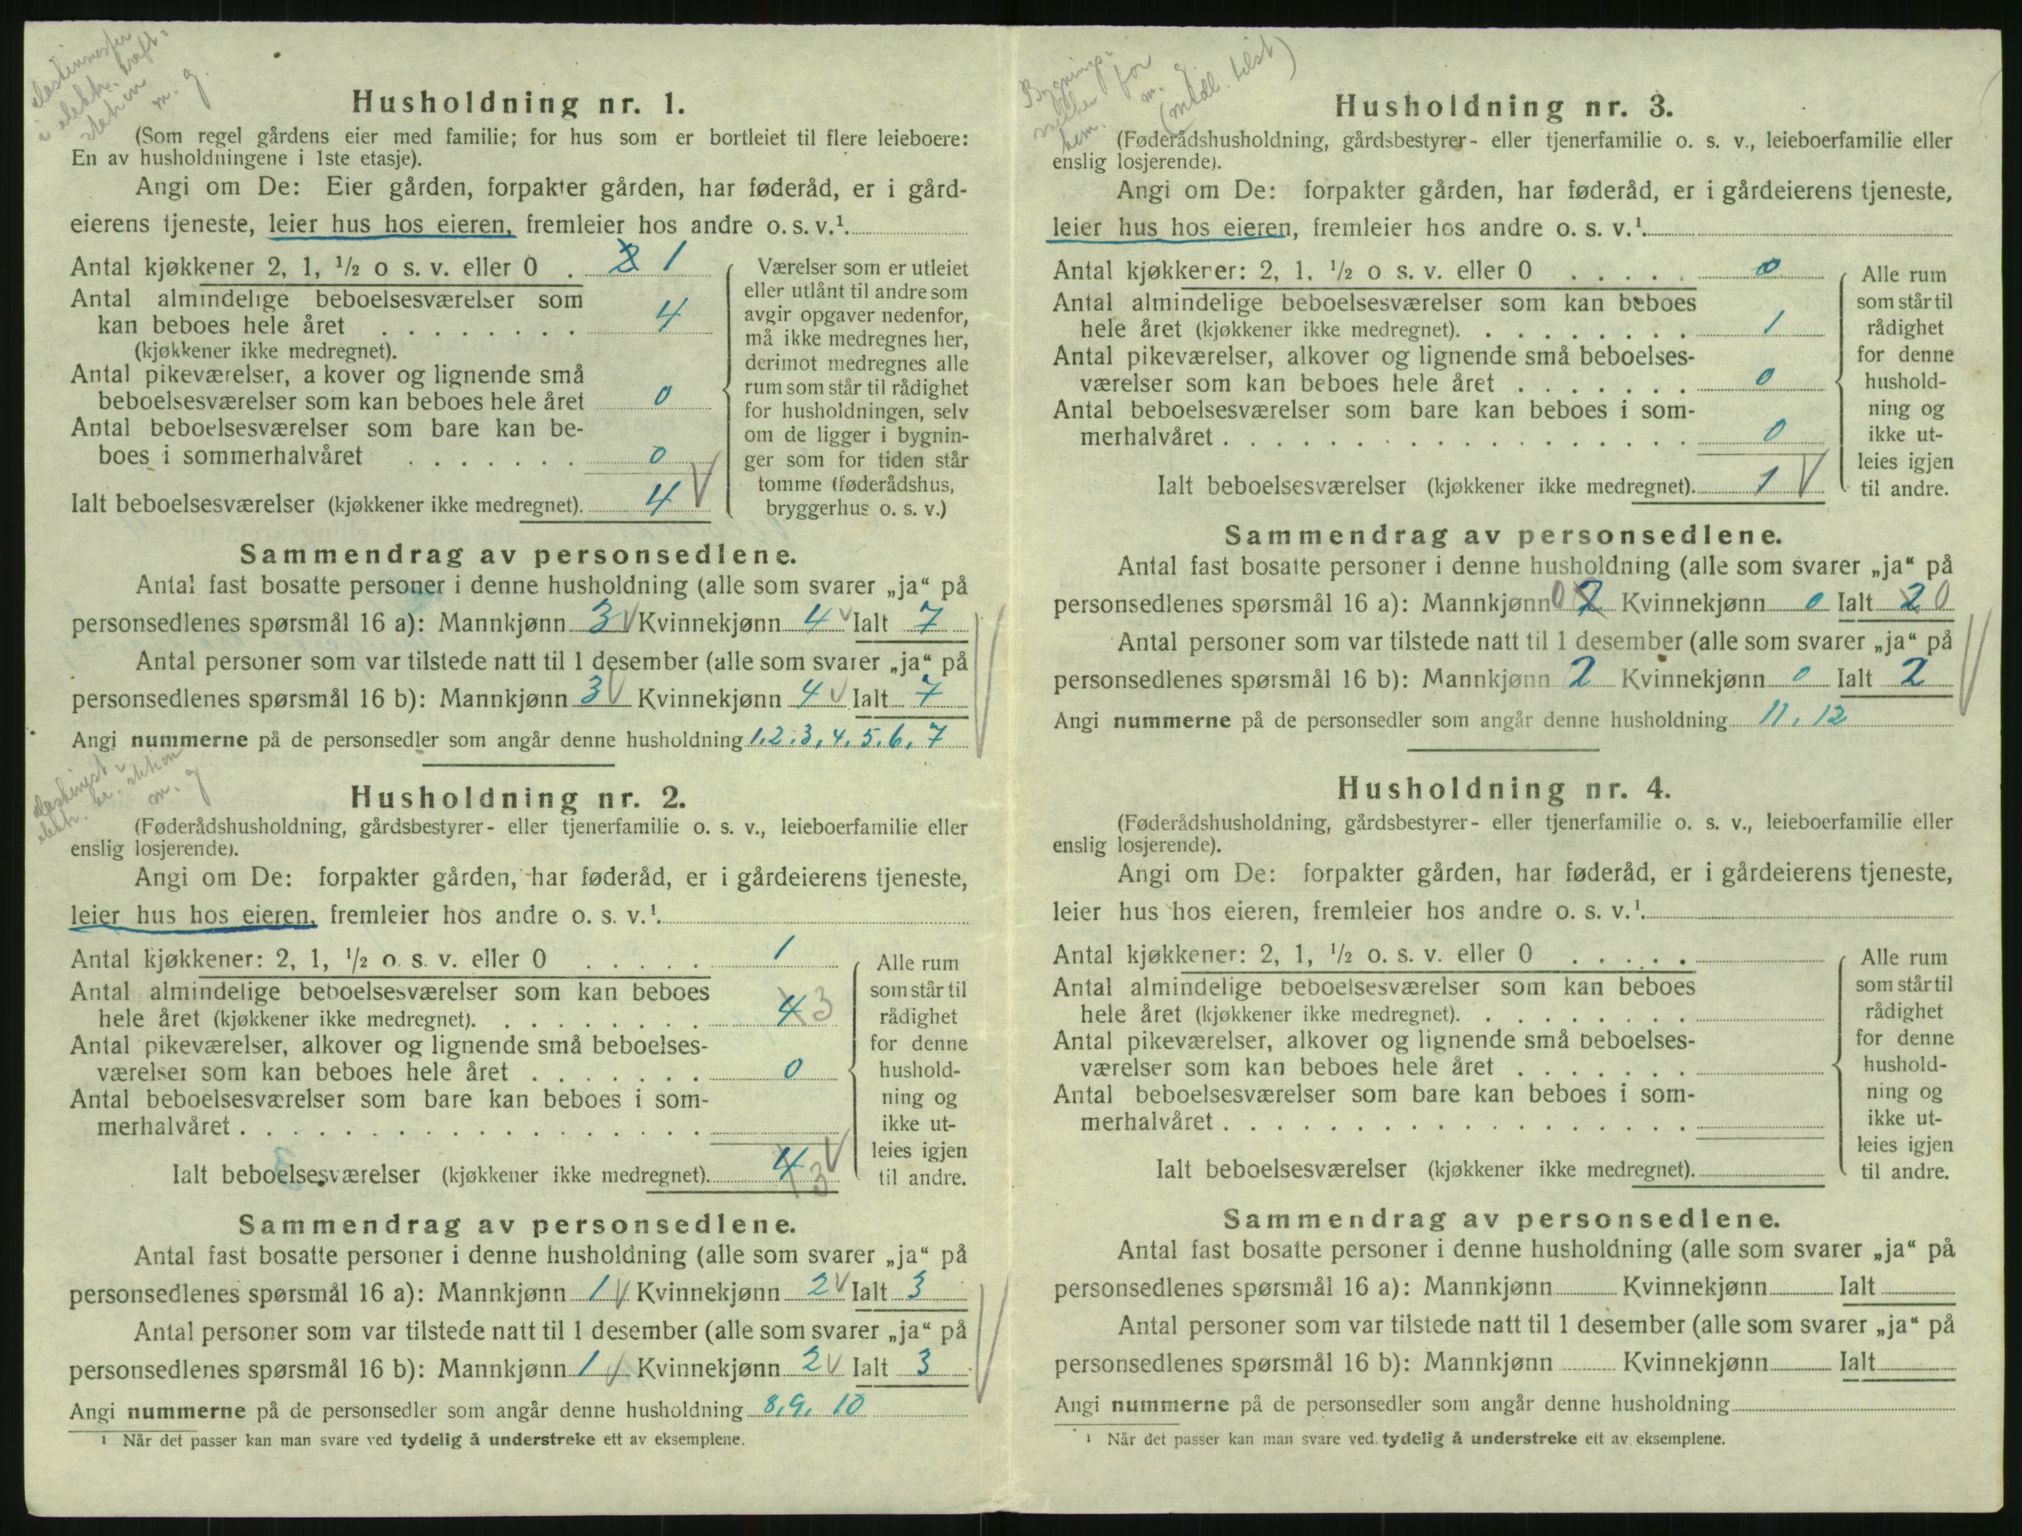 Maskinmester
i elektr. kraft-
station
m. g.
Husholdning nr. 1.
(Som regel gårdens eier med familie; for hus som er bortleiet til flere leieboere:
En av husholdningene i 1ste etasje).
Angi om De: Eier gården, forpakter gården, har føderåd, er i gård-
eierens tjeneste, leier hus hos eieren, fremleier hos andre o. s. v.¹.
Antal kjøkkener 2, 1, ½ o s. v. eller 0 . 2 1
Antal almindelige beboelsesværelser som
kan beboes hele året . . . . . . . . 4
(kjøkkener ikke medregnet).
Antal pikeværelser, a kover og lignende små
beboelsesværelser som kan beboes hele året 0
Antal beboelsesværelser som bare kan be-
boes i sommerhalvåret . . . . . . . 0
Ialt beboelsesværelser (kjøkkener ikke medregnet). 4
Værelser som er utleiet
eller utlånt til andre som
avgir opgaver nedenfor,
må ikke medregnes her,
derimot medregnes alle
rum som står til rådighet
for husholdningen, selv
om de ligger i bygnin-
ger som for tiden står
tomme (føderådshus,
bryggerhus o. s. v.)
Sammendrag av personsedlene.
Antal fast bosatte personer i denne husholdning (alle som svarer „ja“ på
personsedlenes spørsmål 16 a): Mannkjønn 3 Kvinnekjønn 4 Ialt 7
Antal personer som var tilstede natt til 1 desember (alle som svarer „ja“ på
personsedlenes spørsmål 16 b): Mannkjønn 3 Kvinnekjønn 4 Ialt 7
Angi nummerne på de personsedler som angår denne husholdning 1. 2. 3. 4. 5. 6. 7
elektr. station
m. g
Husholdning nr. 2.
(Føderådshusholdning, gårdsbestyrer- eller tjenerfamilie o. s. v., leieboerfamilie eller
enslig losjerende).
Angi om De: forpakter gården, har føderåd, er i gårdeierens tjeneste,
leier hus hos eieren, fremleier hos andre o. s. v.¹.
Antal kjøkkener: 2, 1, ½ o. s. v. eller 0 . . . . . 1
Antal almindelige beboelsesværelser som kan beboes
hele året (kjøkkener ikke medregnet). . . . . . . . . 4 3
Antal pikeværelser, alkover og lignende små beboelses-
værelser som kan beboes hele året . . . . . . . 0
Antal beboelsesværelser som bare kan beboes i som-
merhalvåret . . . . . . . . . . . . . . . . . .
Ialt beboelsesværelser (kjøkkener ikke medregnet). 4 3
Alle rum
som står til
rådighet
for denne
hushold-
ning og
ikke ut-
leies igjen
til andre.
Sammendrag av personsedlene.
Antal fast bosatte personer i denne husholdning (alle som svarer „ja“ på
personsedlenes spørsmål 16 a): Mannkjønn 1 Kvinnekjønn 2 Ialt 3
Antal personer som var tilstede natt til 1 desember (alle som svarer „ja“ på
personsedlenes spørsmål 16 b): Mannkjønn 1 Kvinnekjønn 2 Ialt 3
Angi nummerne på de personsedler som angår denne husholdning 8. 9. 10
¹ Når det passer kan man svare ved tydelig å understreke ett av eksemplene.
for
m. g
(midl. tilst)
Husholdning nr. 3.
(Føderådshusholdning, gårdsbestyrer- eller tjenerfamilie o. s. v., leieboerfamilie eller
enslig losjerende).
Angi om De: forpakter gården, har føderåd, er i gårdeierens tjeneste,
leier hus hos eieren, fremleier hos andre o. s. v.¹.
Antal kjøkkener: 2, 1, ½ o s. v. eller 0 . . . . . 0
Antal almindelige beboelsesværelser som kan beboes
hele året (kjøkkener ikke medregnet). . . . . . . . . 1
Antal pikeværelser, alkover og lignende små beboelses-
værelser som kan beboes hele året . . . . . . . 0
Antal beboelsesværelser som bare kan beboes i som-
merhalvåret . . . . . . . . . . . . . . . . . . 0
Ialt beboelsesværelser (kjøkkener ikke medregnet). 1
Alle rum
som står til
rådighet
for denne
hushold-
ning og
ikke ut-
leies igjen
til andre.
Sammendrag av personsedlene.
Antal fast bosatte personer i denne husholdning (alle som svarer „ja“ på
personsedlenes spørsmål 16 a): Mannkjønn 0 2 Kvinnekjønn 0 Ialt 2 0
Antal personer som var tilstede natt til 1 desember (alle som svarer „ja“ på
personsedlenes spørsmål 16 b): Mannkjønn 2 Kvinnekjønn 0 Ialt 2
Angi nummerne på de personsedler som angår denne husholdning 11. 12
Husholdning nr. 4.
(Føderådshusholdning, gårdsbestyrer- eller tjenerfamilie o. s. v., leieboerfamilie eller
enslig losjerende).
Angi om De: forpakter gården, har føderåd, er i gårdeierens tjeneste,
leier hus hos eieren, fremleier hos andre o. s. v.¹.
Antal kjøkkener: 2, 1, ½ o. s. v. eller 0 . . . . .
Antal almindelige beboelsesværelser som kan beboes
hele året (kjøkkener ikke medregnet). . . . . . . . .
Antal pikeværelser, alkover og lignende små beboelses-
værelser som kan beboes hele året . . . . . . .
Antal beboelsesværelser som bare kan beboes i som-
merhalvåret . . . . . . . . . . . . . . . . . .
Ialt beboelsesværelser (kjøkkener ikke medregnet).
Alle rum
som står til
rådighet
for denne
hushold-
ning og
ikke ut-
leies igjen
til andre.
Sammendrag av personsedlene.
Antal fast bosatte personer i denne husholdning (alle som svarer „ja“ på
personsedlenes spørsmål 16 a): Mannkjønn Kvinnekjønn Ialt
Antal personer som var tilstede natt til 1 desember (alle som svarer „ja“ på
personsedlenes spørsmål 16 b): Mannkjønn Kvinnekjønn Ialt
Angi nummerne på de personsedler som angår denne husholdning
¹ Når det passer kan man svare ved tydelig å understreke ett av eksemplene.